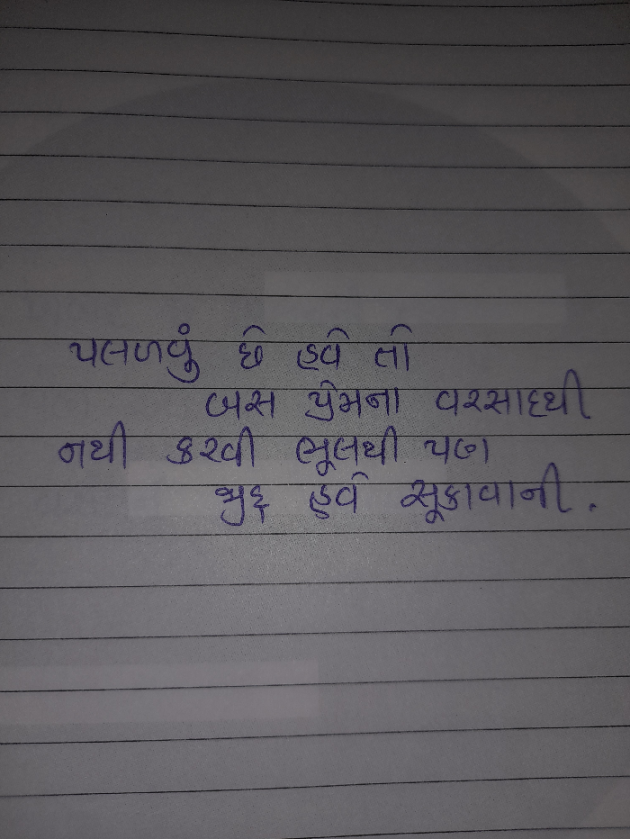 પલળવું છે હવે તો
બસ પ્રેમના વરસાદથી
નથી કરવી ભૂલથી પણ
જીદ્દ હવે સૂકાવાની.